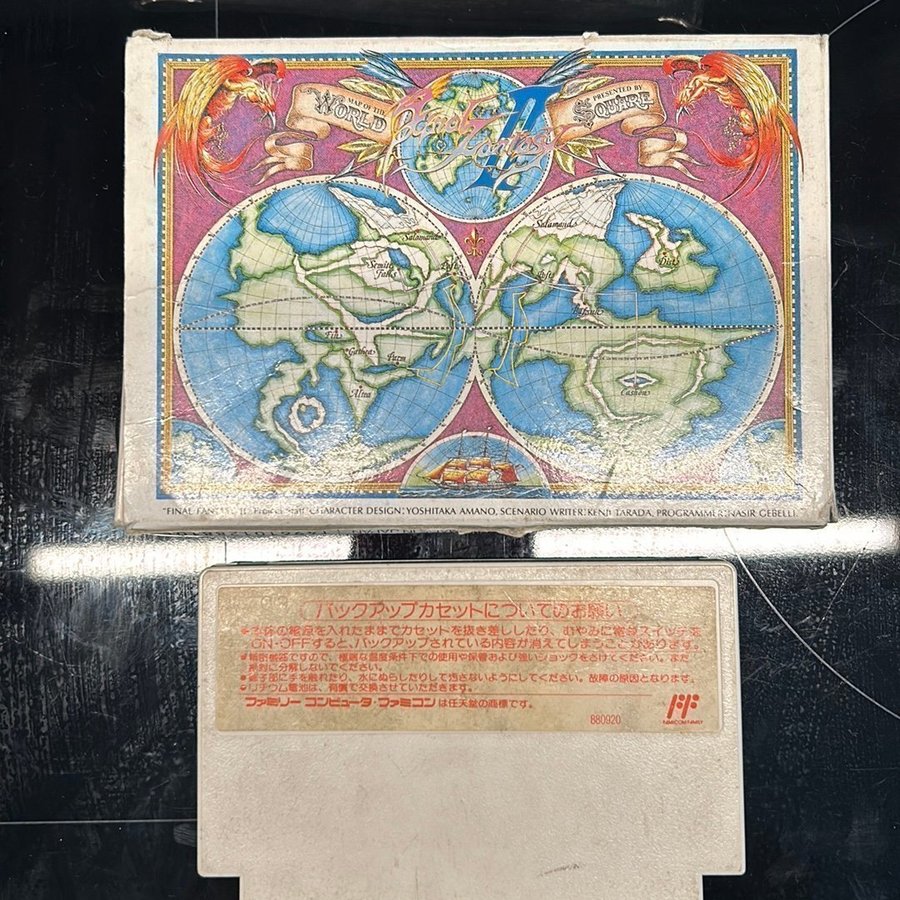 MAP OF THE
WORLD
Final Fantasy II
PRESENTED BY
SQUARE
Salamand
Semitt
Falls
Fin
Gatrea
Parm
Altea
Salamand
Dist
Cashion
"FINAL FANTASY II" Project Staff CHARACTER DESIGN: YOSHITAKA AMANO, SCENARIO WRITER: KENJI TARADA, PROGRAMMER: NASIR GEBELLI.
バックアップカセットについてのお願い
●本体の電源を入れたままでカセットを抜き差ししたり、むやみに電源スイッチを
ON-OFFすると、バックアップされている内容が消えてしまうことがあります。
●精密機器ですので、極端な温度条件下での使用や保管および強いショックをさけてください。また、
絶対に分解しないでください。
●端子部に手を触れたり、水にぬらしたりして汚さないようにしてください。故障の原因となります。
●リチウム電池は、有償で交換させていただきます。
ファミリーコンピュータ・ファミコンは任天堂の商標です。
880920
FF
FAMICOM FAMILY